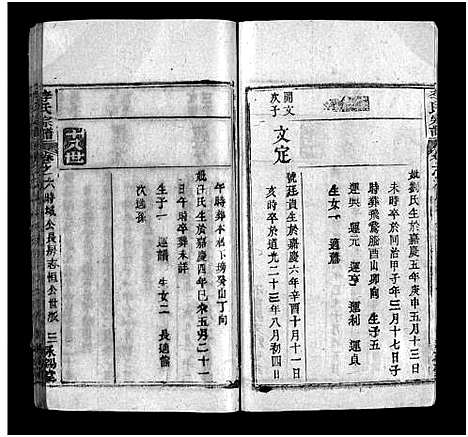 李氏宗譜
開文次子
文定
號廷貴生於嘉慶六年辛酉十月十一日
亥時卒於道光二十三年八月初四日
午時葬本祖下塝癸山丁向
妣汪氏生於嘉慶四年己未五月二十一
日午時卒葬未詳
生子一 運韻 生女二 長適舊
次適孫
妣劉氏生於嘉慶五年庚申五月十三日
未時卒於同治甲子年三月十七日子
時葬飛鵞腦酉山卯向 生子五
運典 運元 運亨 運利 運貞
生女一 適蕭
十八世
李氏宗譜
卷之六 時域公長房志恒公世派 三